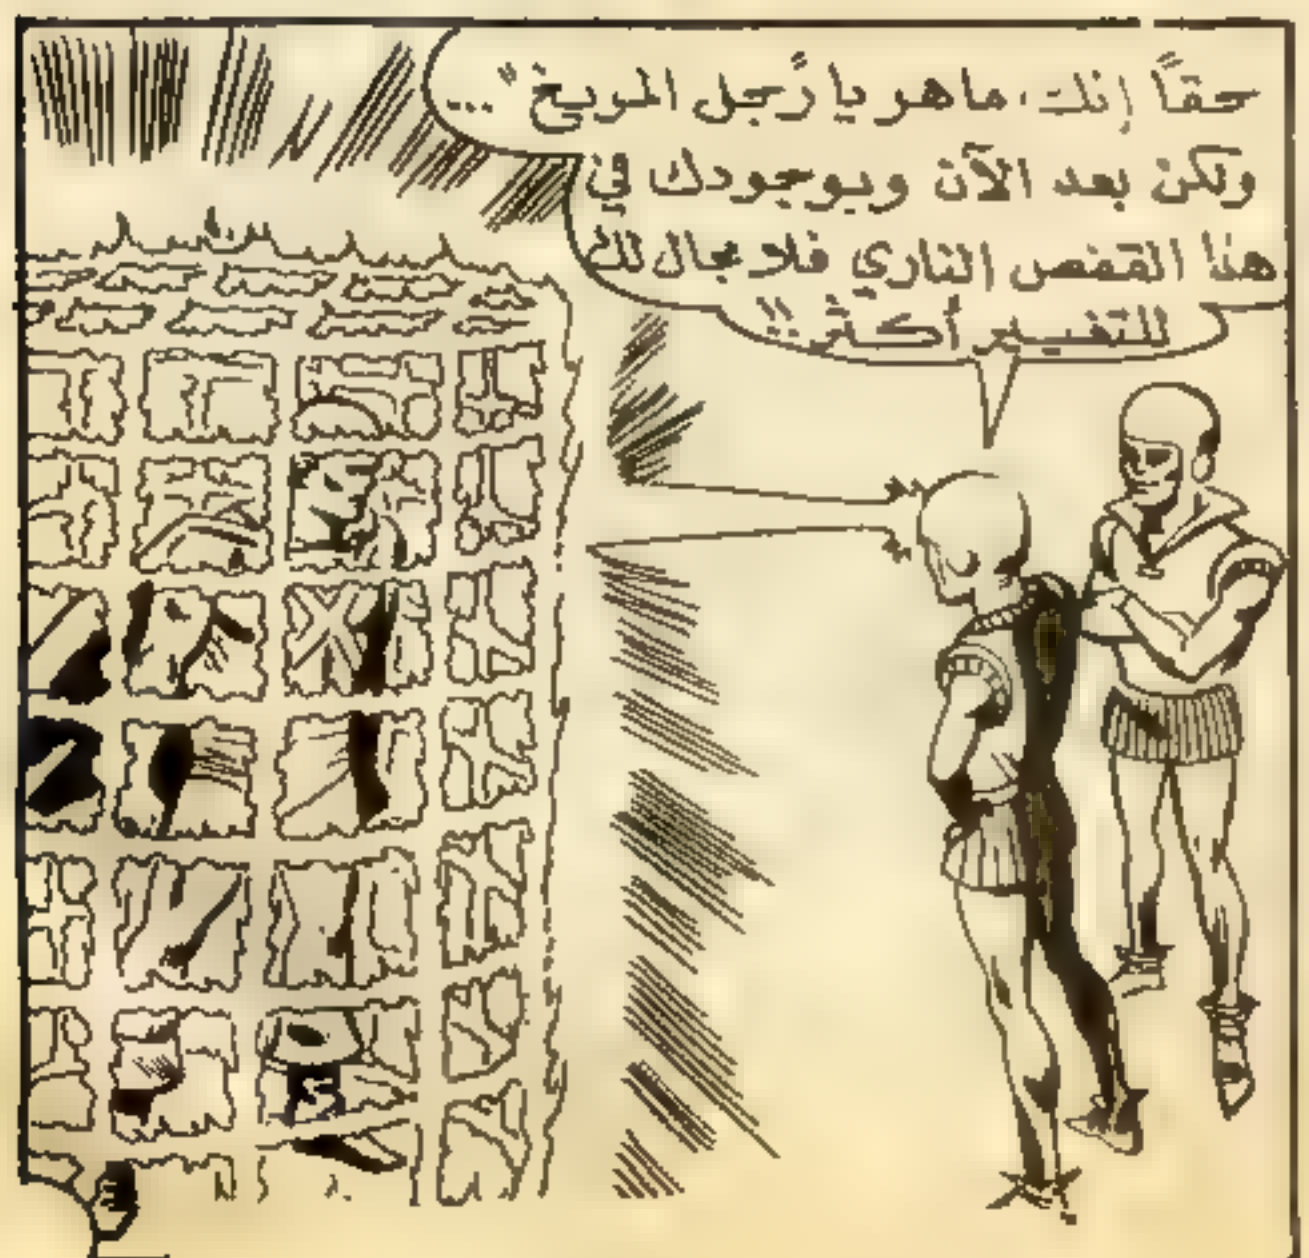 حقاً إنك ماهر يا رَجل المريخ"...
ولكن بعد الآن وبوجودك في
هذا القفص الناري فلا مجال لك
للتفسير أكثر!!